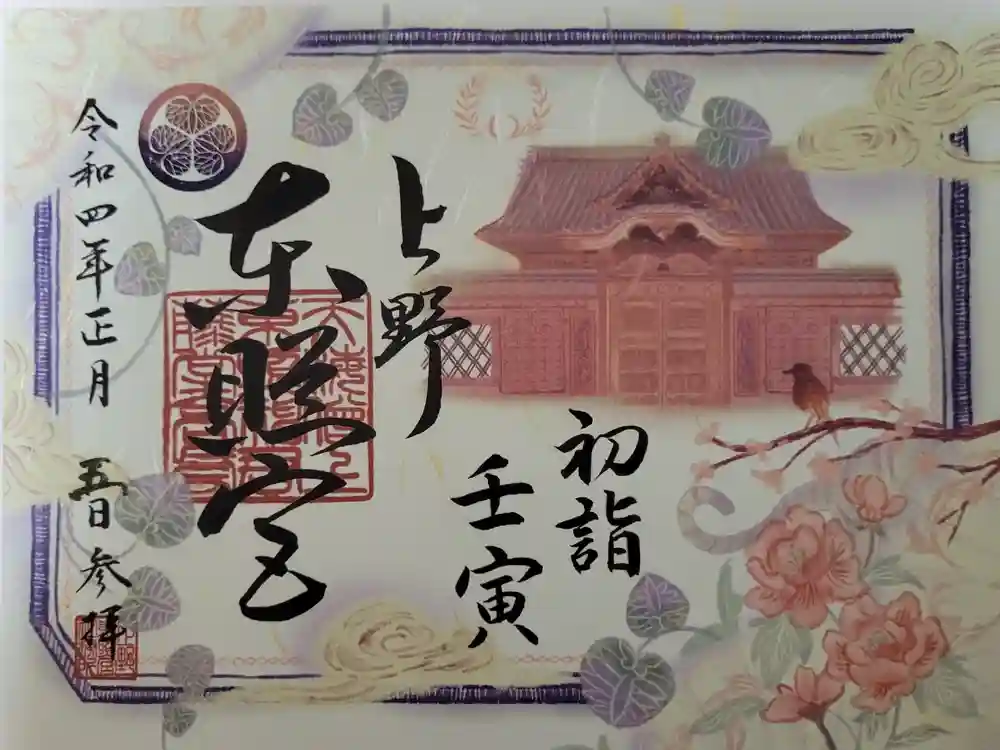 初詣
壬寅
上野
東照宮
令和四年正月 五日参拝